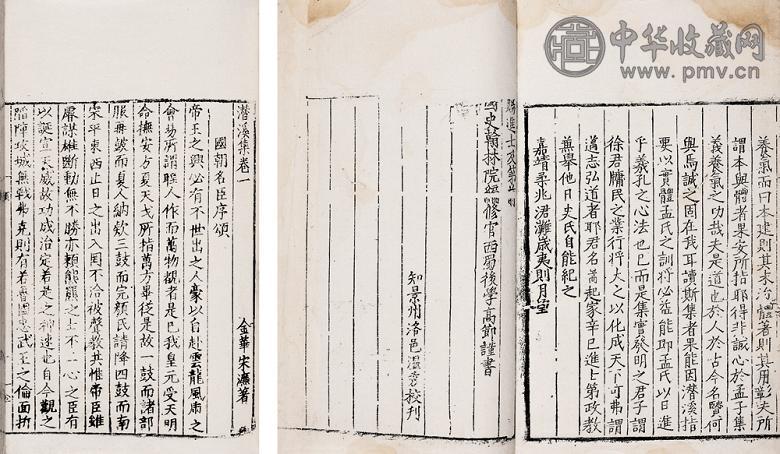 中华收藏网
www.pmv.cn
養氣而曰本建則其末治體著則其用彰夫所
謂本與體者果安所指耶得非誠心於孟子集
義養氣之功哉夫是道也於人於古今名賢何
與焉誠之固在我耳讀斯集者果能因潛溪指
要以實體孟氏之訓將必益能即孟氏以日進
乎羲孔之心法也已而是集實發明之君子謂
徐君牖民之業行將大之以化成天下可弗謂
邁志弘道者耶君名嵩起家辛巳進士第政教
兼舉他日史氏自能紀之
嘉靖柔兆涒灘歲夷則月望
賜進士及第
國史翰林院編修官西蜀後學高節謹書
知景州洛邑溫秀校刊
潛溪集卷一
金華宋濂著
國朝名臣序頌
帝王之興必有不世出之人豪以自赴雲龍風虎之
會易所謂聖人作而萬物覩者是已我皇元受天明
命撫安方夏天戈所指萬方畢從是故一鼓而諸部
服再鼓而夏人納欵三鼓而完顏氏請降四鼓而南
宋平東西止日之出入罔不洽被聲教共惟帝臣雖
廟謨雄斷動無不勝亦賴熊羆之士不二心之臣有
以誕宣天威故功成治定若是之神速也自今觀之
蹈陣攻城無戰弗克則有若魯國忠武王之倫面折